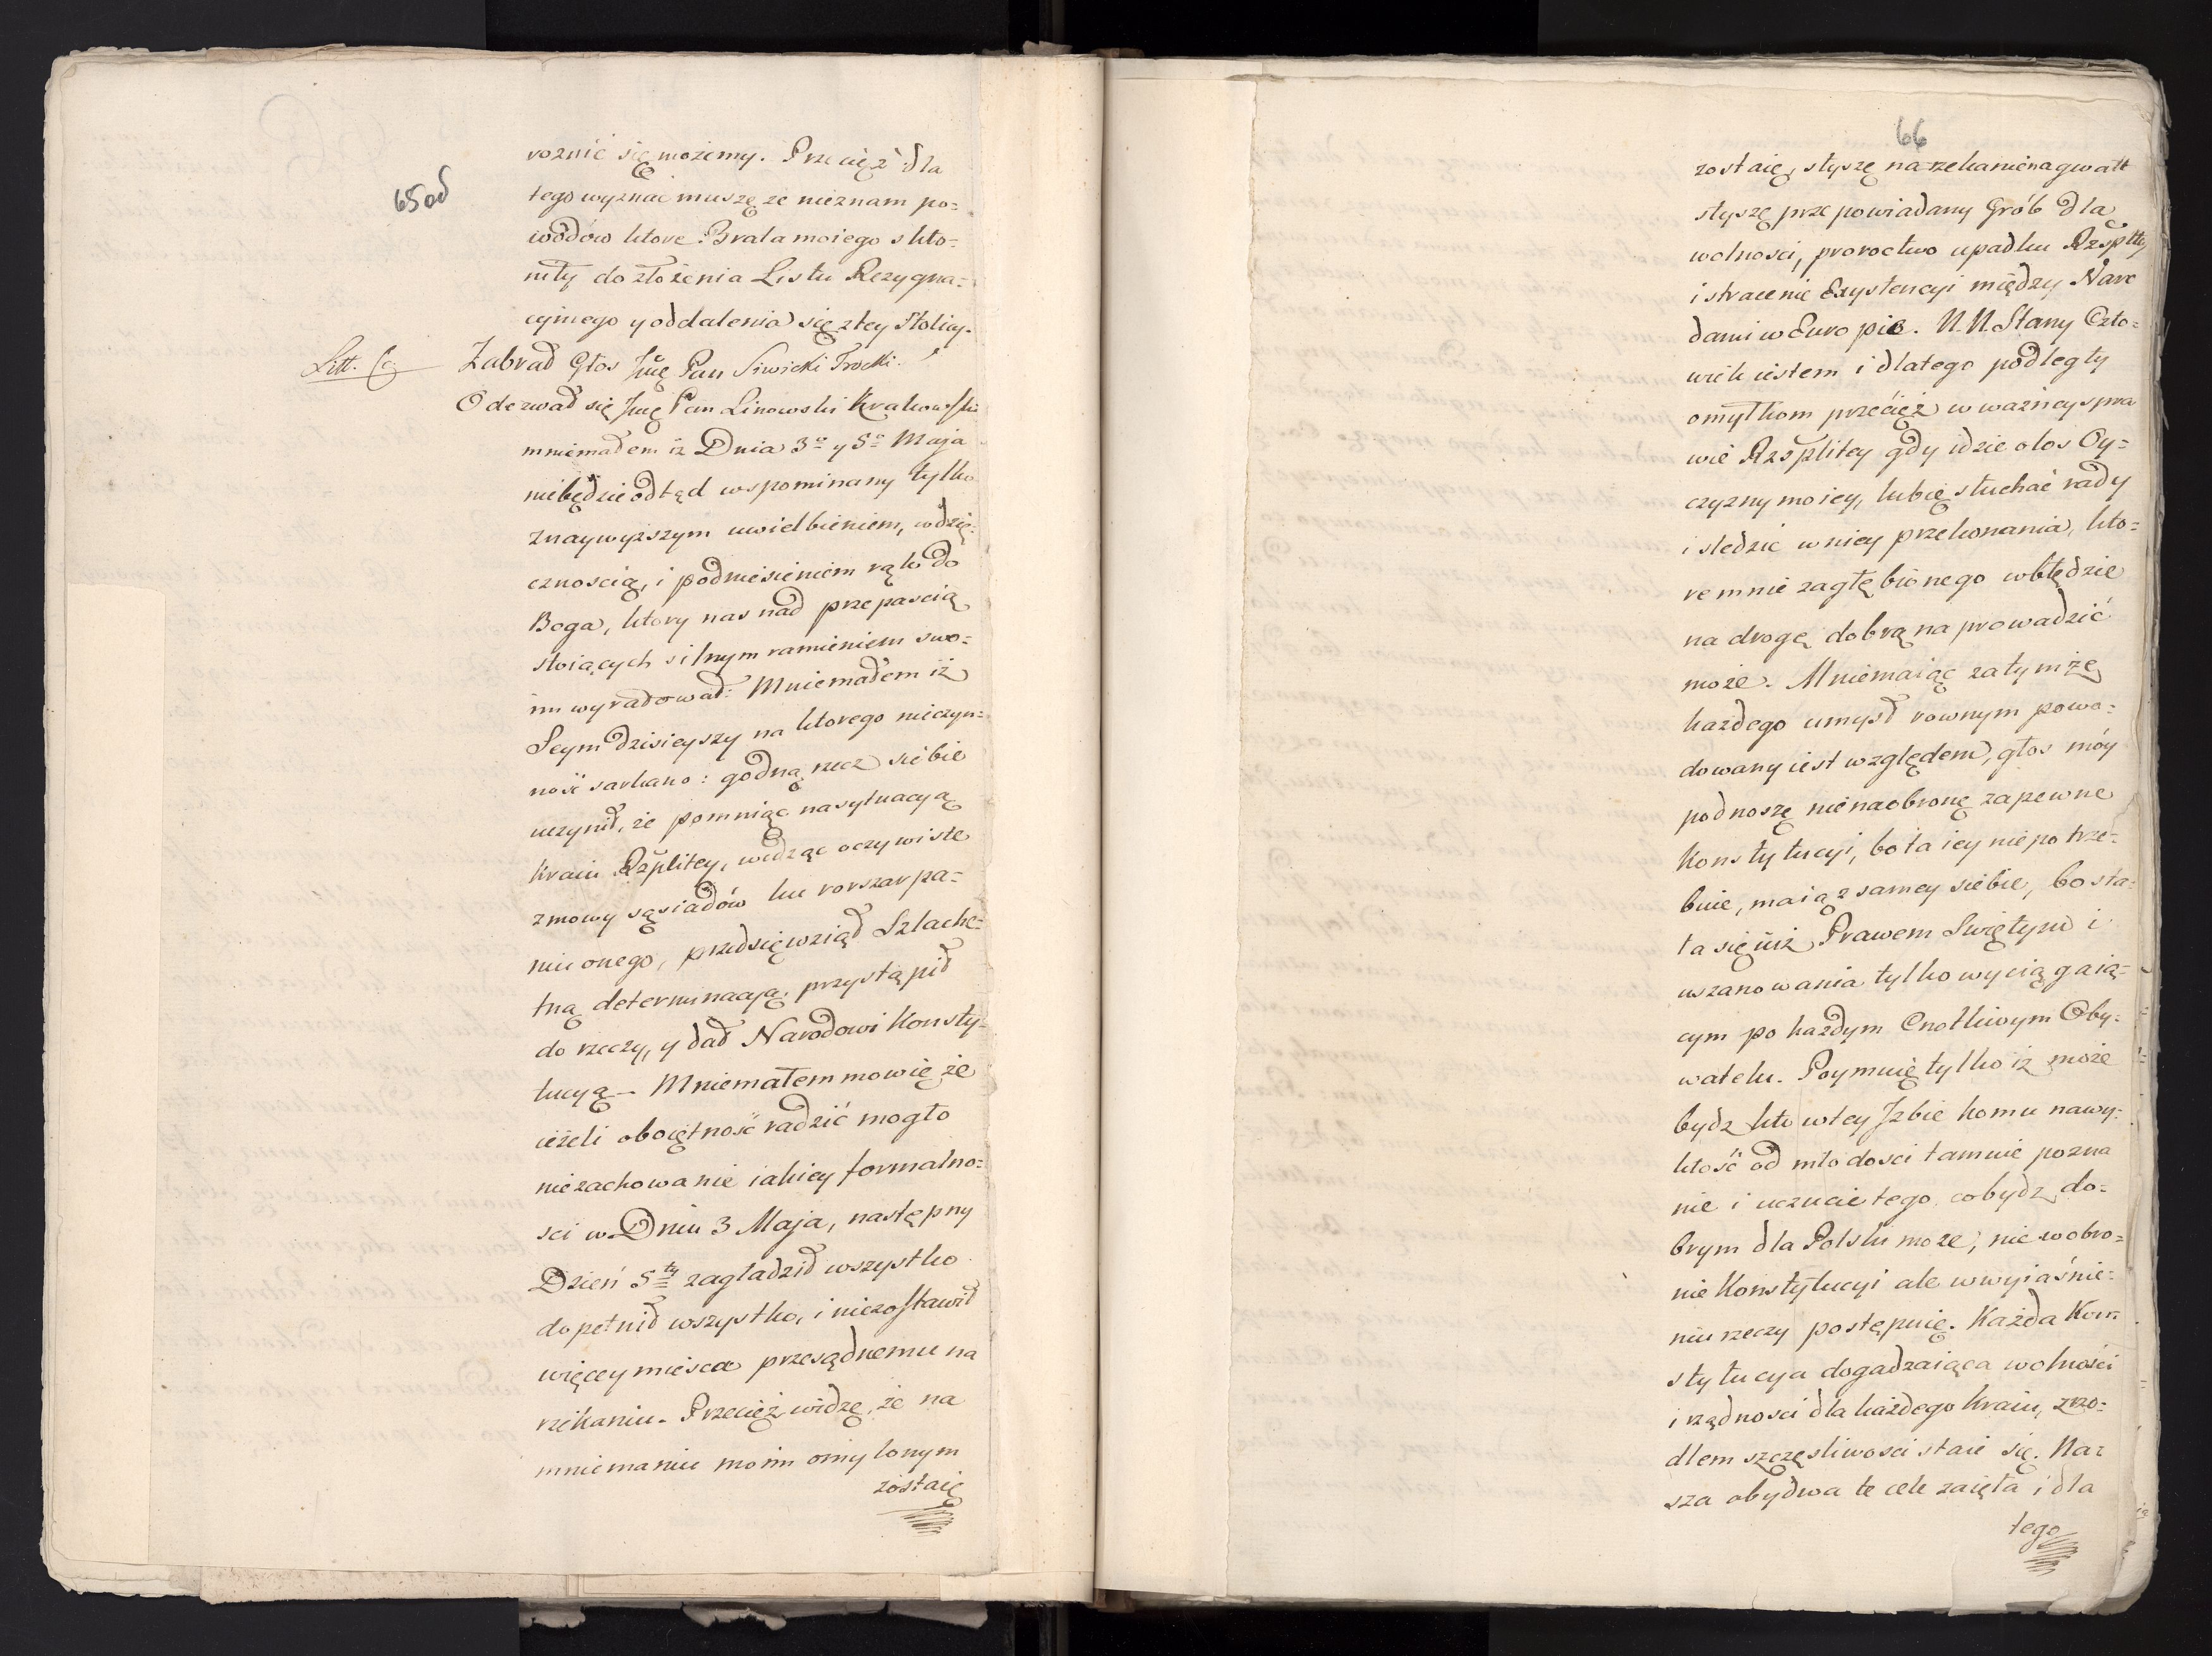 65 od
roznić się możemy. Przecięż dla
tego wyznac muszę ze nieznam po=
wodow ktore Brata moiego skło=
niły do złożenia Listu Rezygna=
cyinego y oddalenia się z tey Stolicy.
Litt. C
Zabrał Głos Jmę Pan Siwicki Trocki.
Odezwał się Jmę Pan Linowski Krakowski
mniemałem iz Dnia 3º y 5º Maja
niebędzie odtąd wspominany tylko
znaywyższym uwielbieniem, wdzię:
cznoscią, i podniesieniem rąk do
Boga, ktory nas nad przepascią
stoiących silnym ramieniem swo=
im wyratował: Mniemałem iż
Seym dzisieyszy na ktorego nieczyn=
ność sarkano: godną rzecz siebie
uczynił, że pomniąc na sytuacyą
kraiu Rzplitey, widząc oczywiste
zmowy sąsiadów ku rozszarpa=
niu onego, przedsięwziął Szlache=
tną determinacyą, przystąpił
do rzeczy, y dał Narodowi Konsty=
tucyą — Mniemałem mowię że
ieżeli oboiętność radzić mogło
niezachowanie iakiey formalno=
sci w Dniu 3 Maja, następny
Dzień 5ty zagładził wszystko
dopełnił wszystko, i niezostawił
więcey miesca przesądnemu na
rzekaniu. Przecięż widzę, że na
mniemaniu moim omylonym
zostaię
66
zostaię, słyszę narzekanie na gwałt
słyszę przepowiadany Grób dla
wolnosci, proroctwo upadku Rzspltty
i stracenie Exystencyi między Naro
dami w Europie. N. N. Stany Czło=
wiek iestem i dlatego podległy
omyłkom przecięż w ważney spra
wie Rzsplitey gdy idzie o los Oy=
czyzny moiey, lubię słuchać rady
i sledzic w niey przekonania, kto=
re mnie zagłębionego w błędzie
na drogę dobrą naprowadzić
może. Mniemaiąc zatym że
każdego umysł rownym powo=
dowany iest względem, głos móy
podnoszę nie na obronę zapewne
Konstytucyi, bo ta iey nie potrze=
buie, maiąz samey siebie, bo sta=
ła się iuż Prawem Swiętym i
uszanowania tylko wyciągaią=
cym po każdym Cnotliwym Oby=
watelu. Poymuię tylko iż może
bydz kto w tey Izbie komu nawy=
kłość od młodosci tamuie pozna
nie i uczucie tego co bydz do=
brym dla Polski może, nie w obro=
nie Konstytucyi ale w wyiaśnie=
niu rzeczy postępuię. Każda Kon
stytucya dogadzaiąca wolności
i rządnosci dla każdego kraiu, zrzo=
dlem szczęsliwosci staie się. Na=
sza obydwa te cele zaięła i dla
tego